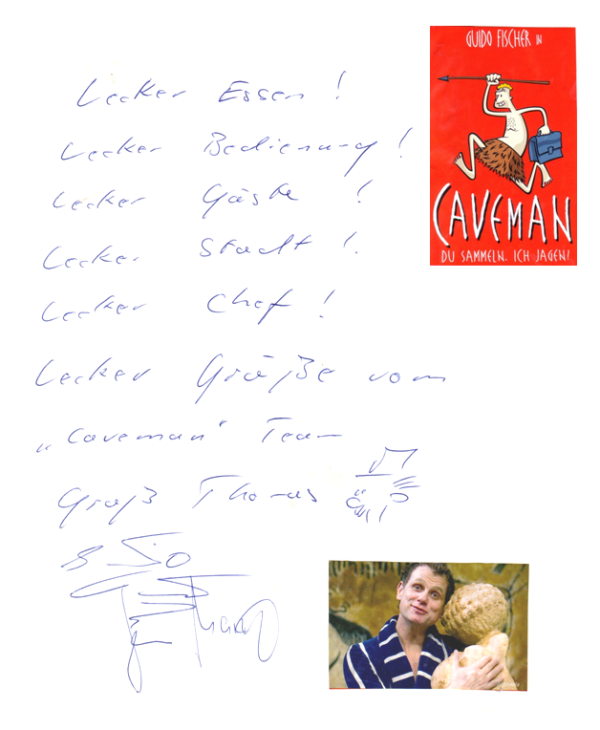 Lecker Essen!
Lecker Bedienung!
Lecker Gäste !
Lecker Stadt!
Lecker Chef!
Lecker Grüße vom
„Caveman" Team
Gruß Thomas
GUIDO FISCHER IN
CAVEMAN
DU SAMMELN. ICH JAGEN!